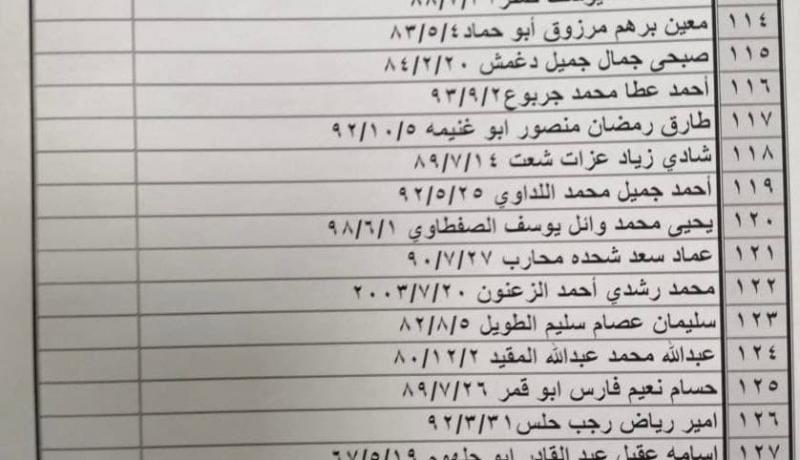 ١١٤ معين برهم مرزوق أبو حماد ٨٣/٥/٤
١١٥ صبحى جمال جميل دغمش ٨٤/٢/٢٠
١١٦ أحمد عطا محمد جربوع ٩٣/٩/٢
١١٧ طارق رمضان منصور ابو غنيمه ٩٢/١٠/٥
١١٨ شادي زياد عزات شعت ٨٩/٧/١٤
١١٩ أحمد جميل محمد اللداوي ٩٢/٥/٢٥
١٢٠ يحيى محمد وائل يوسف الصفطاوي ٩٨/٦/١
١٢١ عماد سعد شحده محارب ٩٠/٧/٢٧
١٢٢ محمد رشدي أحمد الزعنون ٢٠٠٣/٧/٢٠
١٢٣ سليمان عصام سليم الطويل ٨٢/٨/٥
١٢٤ عبدالله محمد عبدالله المقيد ٨٠/١٢/٢
١٢٥ حسام نعيم فارس ابو قمر ٨٩/٧/٢٦
١٢٦ امير رياض رجب حلس ٩٢/٣/٣١
١٢٧ اسامه عقيل عبد القادر ابو جلهوم ٦٧/٥/١٩